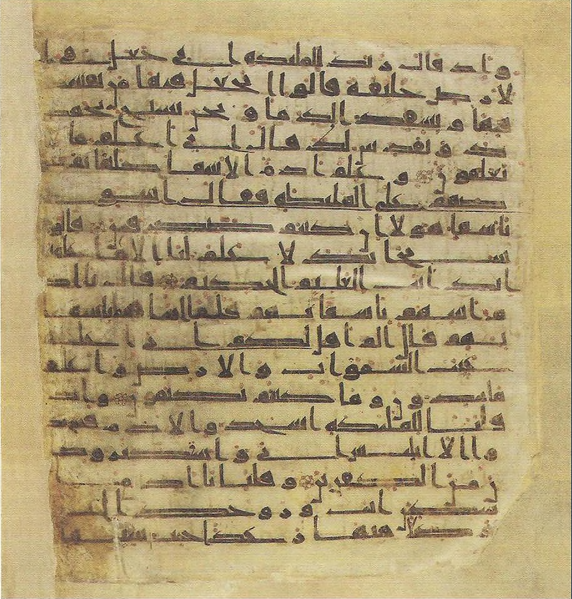 واذ قال ربك للملئكه انى جعل فى ا
لارض خليفة قالوا اتجعل فيها من يفسد
فيها ويسفك الدما ونحن نسبح بحمد
ك ونقدس لك قال انى اعلم ما لا
تعلمون وعلم ادم الاسما كلها ثم عر
ضهم على الملئكه فقال انبونى
باسما هولا ان كنتم صدقين قالو
ا سبحنك لا علم لنا الا ما علمتنا
انك انت العليم الحكيم قال يادم
انبهم باسمائهم فلما انباهم باسما
ئهم قال الم اقل لكم انى اعلم
غيب السموات والارض واعلم
ما تبدون وما كنتم تكتمون واذ
قلنا للملئكه اسجدوا لادم فسجد
وا الا ابليس ابى واستكبر وكا
ن من الكفرين وقلنا يادم ا
سكن انت وزوجك الجنه
وكلا منها رغدا حيث شئتما